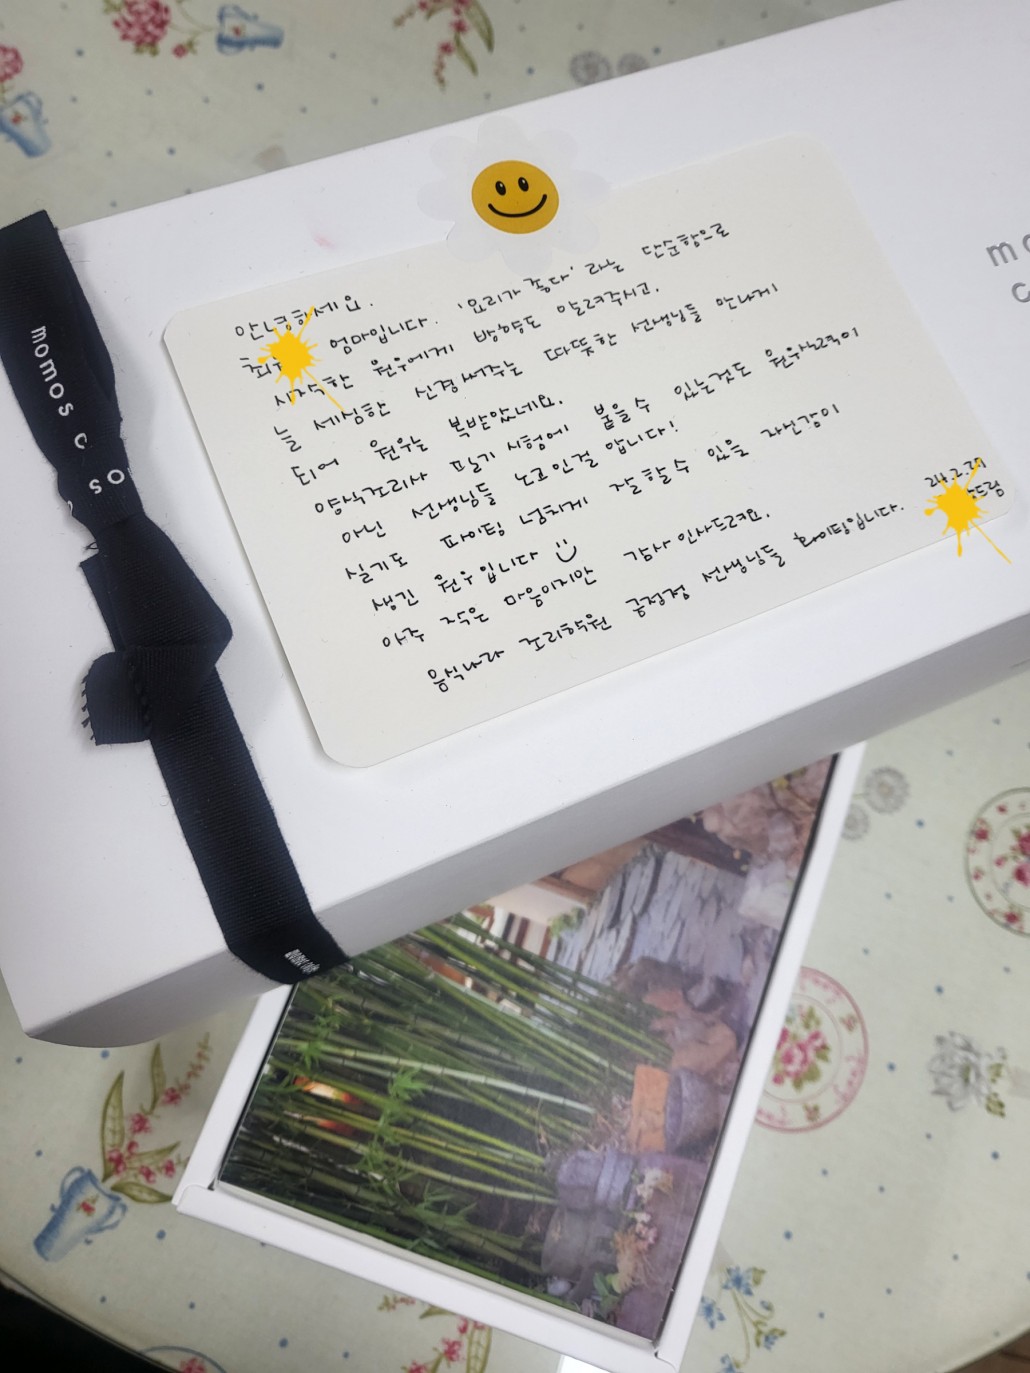 안녕하세요.
엄마입니다. '요리가 좋다' 라는 단순함으로
시작한 원우에게 방향도 알려주시고,
늘 세심한 신경써주는 따뜻한 선생님들 만나게
되어 원우는 복받았네요.
양식조리사 필기시험에 붙을수 있는것도 원우노력이
아닌 선생님들 노고인걸 압니다!
실기도 파이팅 넘치게 잘할수 있을 자신감이
생긴 원우입니다
아주 작은 마음이지만 감사 인사드려요.
24.2.29
음식나라 조리학원 금정점 선생님들 파이팅입니다. 드림
momos c
os
mo
c